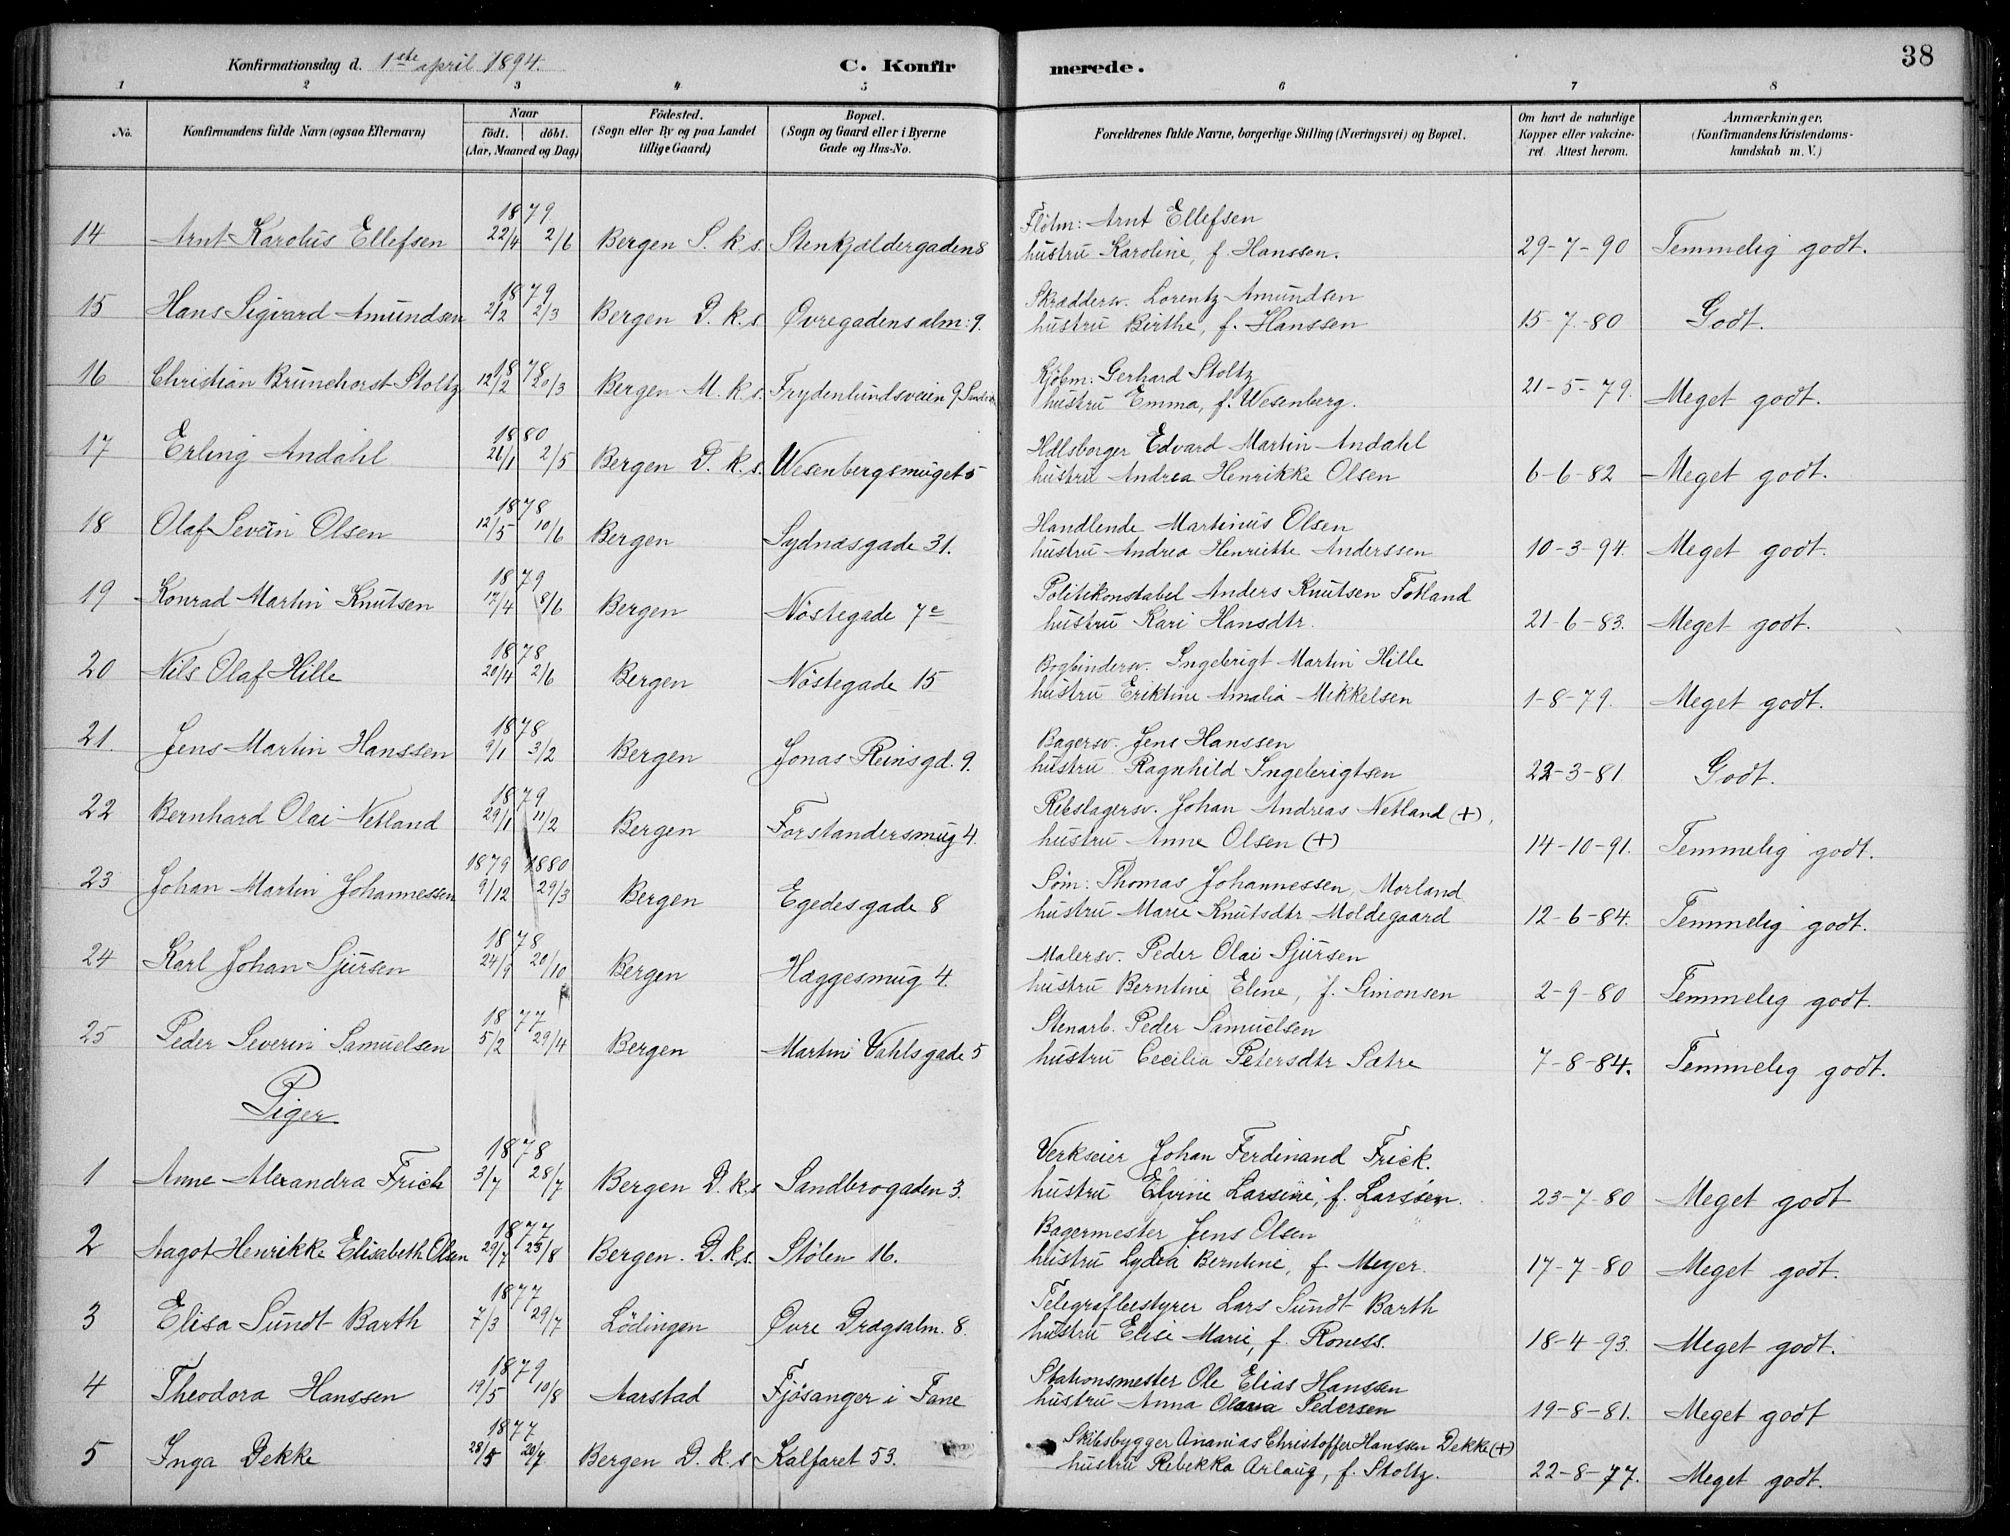 Konfirmationsdag d. 1ste april 1894.
C. Konfirmerede.
38
1 2 3 4 5 6 7 8
No.
Konfirmandens fulde Navn (ogsaa Efternavn)
Naar
født. døbt.
(Aar, Maaned og Dag)
Fødested.
(Sogn eller By og paa Landet
tillige Gaard)
Bopæl.
(Sogn og Gaard eller i Byerne
Gade og Hus-No.
Forældrenes fulde Navne, borgerlige Stilling (Næringsvei) og Bopæl.
Om havt de naturlige
Kopper eller vakcine-
ret. Attest herom.
Anmærkninger.
(Konfirmandens Kristendoms-
kundskab m. V.)
1879
14 Arnt Karolus Ellefsen 22/4 2/6 Bergen S. k. s. Stenkjeldergaden 8
Fløtm: Arnt Ellefsen
hustru Karoline, f. Hanssen. 29-7-90 Temmelig godt.
1879
15 Hans Sigvard Amundsen 2/2 2/3 Bergen D. k. s. Øvregadens alm: 9.
Skrædderv. Lorentz Amundsen
hustru Birthe, f. Hanssen 15-7-80 Godt.
1878
16 Christian Brunchorst Stoltz 12/2 20/3 Bergen M. k. s. Frydenlundsveien 9
Kjøbm: Gerhard Stoltz
hustru Emma, f. Wesenberg. 21-5-79. Meget godt.
1880
17 Erling Andahl 26/1 2/5 Bergen D. k. s. Wesenbergsmuget 5
Hdlsborger Edvard Martin Andahl
hustru Andrea Henrikke Olsen 6-6-82 Meget godt.
1878
18 Olaf Severin Olsen 12/5 10/6 Bergen Sydnæsgade 31.
Handlende Martinus Olsen
hustru Andrea Henriette Anderssen 10-3-94. Meget godt.
1879
19 Konrad Martin Knutsen 17/4 8/6 Bergen Nøstegade 7c
Politikonstabel Anders Knutsen Fotland
hustru Kari Hansdtr. 21-6-83. Meget godt.
1878
20 Nils Olaf Hille 20/4 2/6 Bergen Nøstegade 15
Bogbindersv. Ingebrigt Martin Hille
hustru Eriktine Amalia Mikkelsen 1-8-79. Meget godt.
1878
21. Jens Martin Hanssen 9/1 3/2 Bergen Jonas Reinsgd. 9.
Bagersv. Jens Hanssen
hustru Ragnhild Ingebrigtsen 22-3-81 Godt.
1879
22 Bernhard Olai Netland 29/1 11/2 Bergen Forstandersmug 4.
Rebslagersv. Johan Andreas Netland (+),
hustru Anne Olsen (+) 14-10-91. Temmelig godt.
1879 1880
23 Johan Martin Johannessen 9/12 29/3 Bergen Egedesgade 8
Søm: Thomas Johannessen, Morland
hustru Marie Knutsdtr Moldegaard 12-6-84. Temmelig godt.
1878
24 Karl Johan Sjursen 24/9 20/10 Bergen Hæggesmug 4.
Malersv. Peder Olai Sjursen
hustru Berntine Eline, f. Simonsen 2-9-80 Temmelig godt.
1877
25 Peder Severin Samuelsen 5/2 29/4 Bergen Martin Vahlsgade 5
Stenarb. Peder Samuelsen
hustru Cecilia Petersdtr Sætre 7-8-84. Temmelig godt.
Piger
1878
1 Anne Alexandra Frick 3/7 28/7 Bergen D. k. s Sandbrogaden 3.
Verkseier Johan Ferdinand Frick.
hustru Elvine Larsine, f. Larssen. 23-7-80 Meget godt
1877
2 Aagot Henrikke Elisabeth Olsen 29/7 23/8 Bergen. D. k. s. Stølen 16.
Bagermester Jens Olsen
hustru Lydia Berntine, f. Meyer. 17-7-80 Meget godt.
1877
3 Elisa Sundt Barth 7/3 29/7 Lødingen Øvre Dragsalm. 8.
Telegrafbestyrer Lars Sundt Barth
hustru Elise Marie, f. Roness. 18-4-93. Meget godt.
1879
4 Theodora Hanssen 19/5 10/8 Aarstad Fjøsanger i Fane
Stationsmester Ole Elias Hanssen
hustru Anna Olava Pedersen 19-8-81. Meget godt
1877
5 Inga Dekke 28/5 20/7 Bergen D. k. s Kalfaret 53.
Skibsbygger Ananias Christoffer Hanssen Dekke (+)
hustru Rebekka Arlaug, f. Stoltz. 22-8-77. Meget godt.